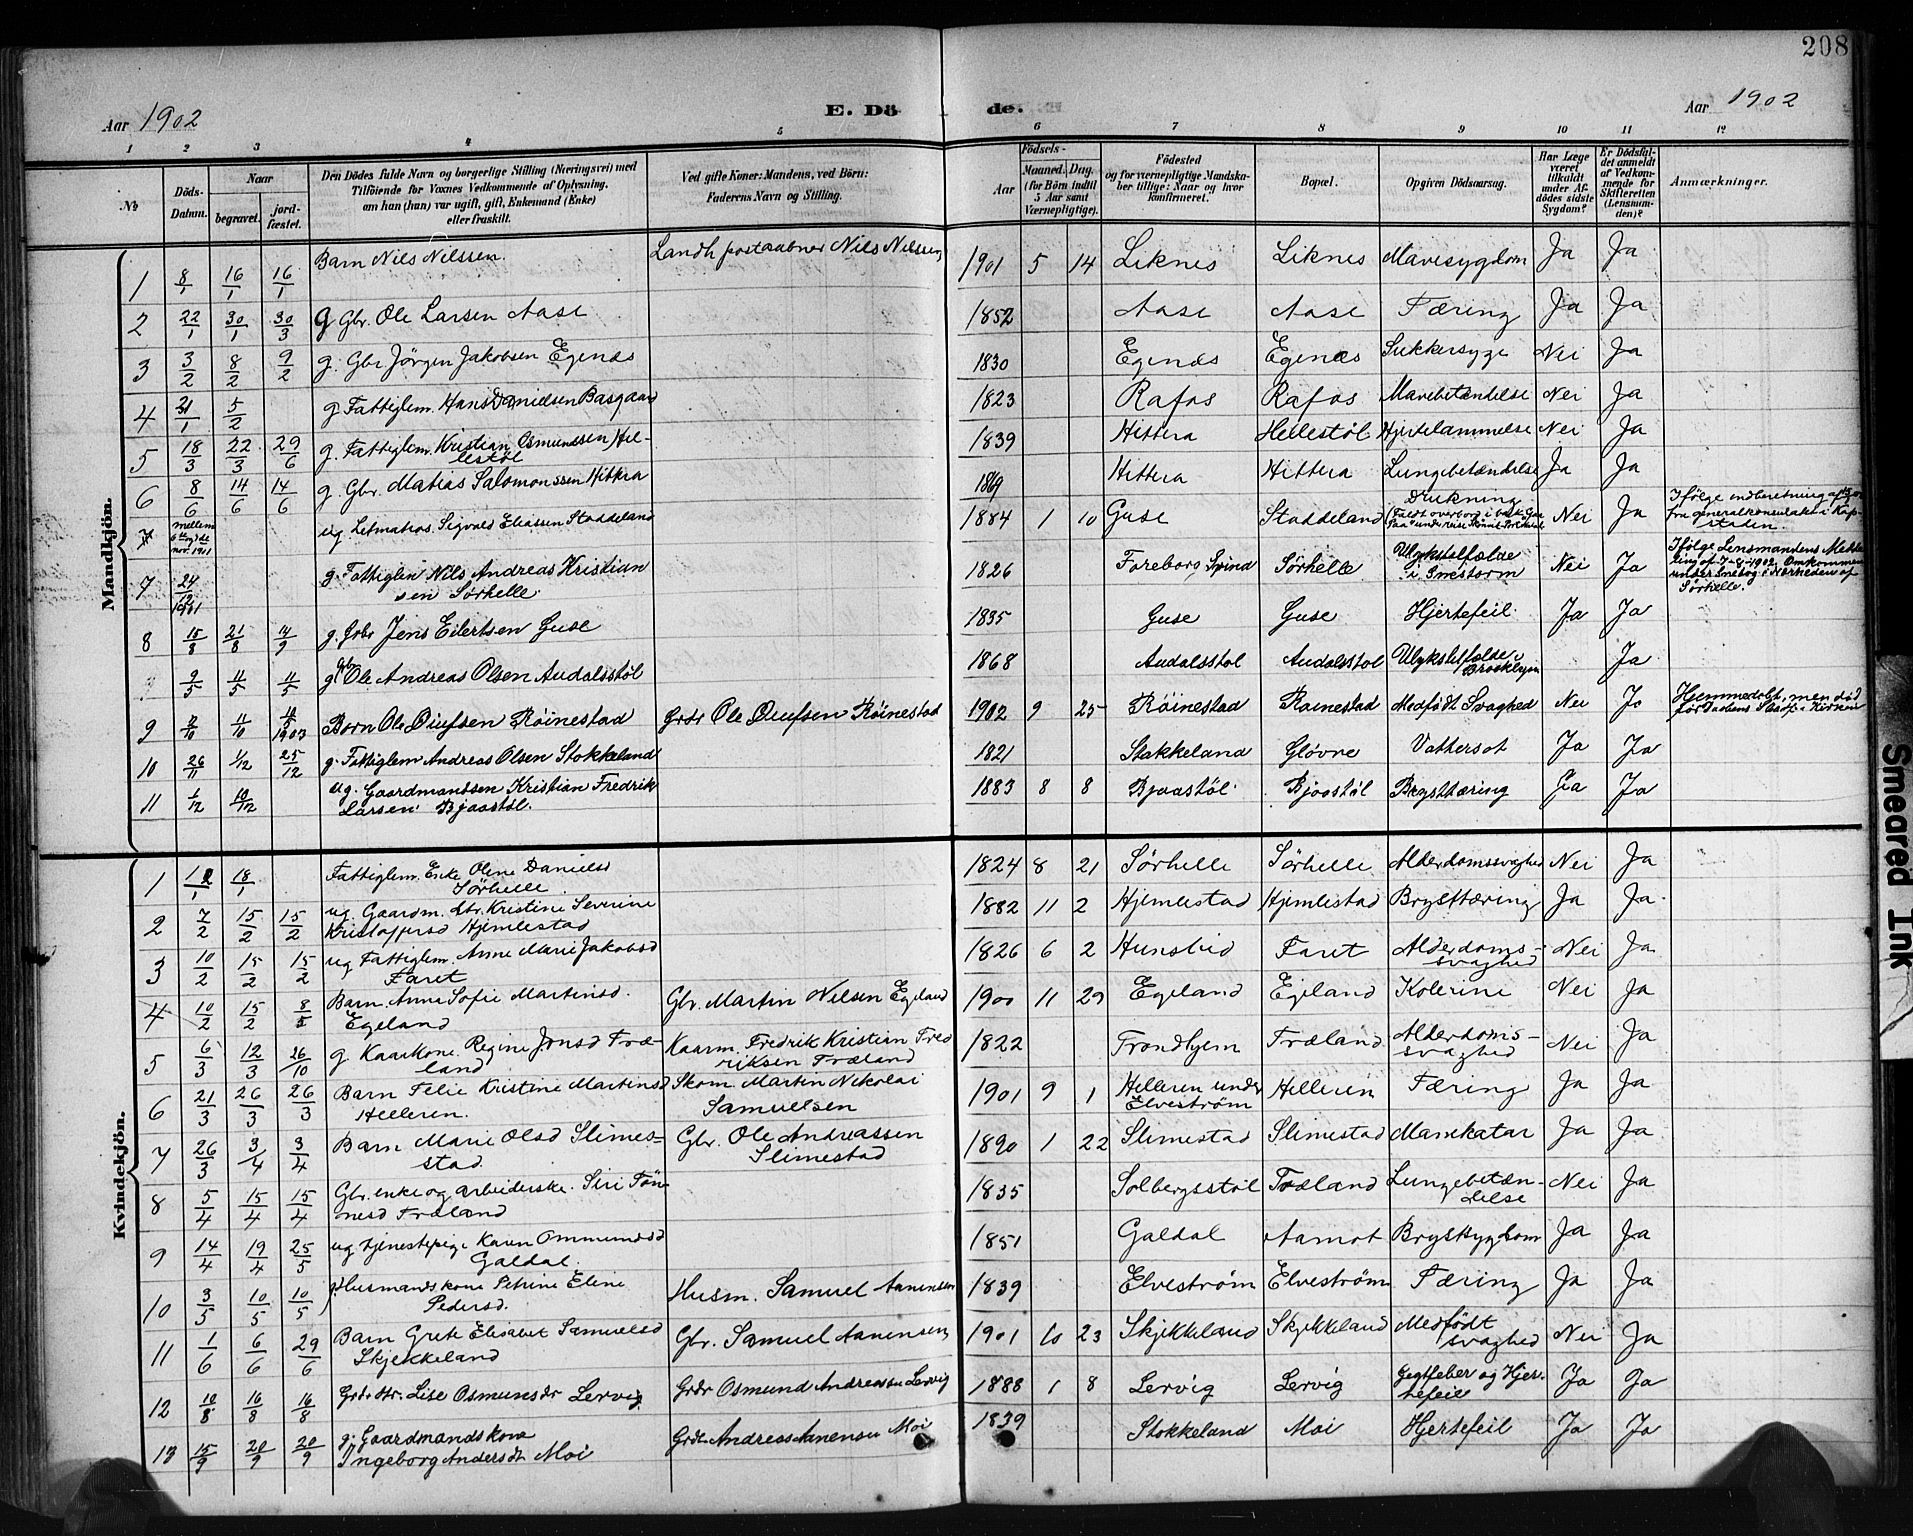 208
Aar 1902
E. Dö
de.
Aar 1902
1 2 3 4 5 6 7 8 9 10 11 12
№
Döds-
Datum.
Naar
begravet.
jord-
fæstet.
Den Dödes fulde Navn og borgerlige Stilling (Næringsvei) med
Tilföiende for Voxnes Vedkommende af Oplysning,
om han (hun) var ugift, gift, Enkemand (Enke)
eller fraskilt.
Ved gifte Koner: Mandens, ved Börn:
Faderens Navn og Stilling.
Födsels-
Aar
Maaned. Dag.
(for Börn indtil
5 Aar samt
Værnepligtige).
Födested
og for værnepligtige Mandska-
ber tillige: Naar og hvor
konfirmeret.
Bopæl.
Opgiven Dödsaarsag.
Har Læge
været
tilkaldt
under Af-
dödes sidste
Sygdom?
Er Dödsfal-
det anmeldt
af Vedkom-
mende for
Skifteretten
(Lensman-
den)?
Anmærkninger.
Mandkjön.
1 8/1 16/1 16/1 Barn Nils Nilssen. Landh. postaabner Nils Nilssen 1901 5 14 Liknes Liknes Mavesygdom Ja Ja
2 22/1 30/1 30/3 g Gbr. Ole Larsen Aase 1852 Aase Aase Tæring Ja Ja
3 3/2 8/2 9/2 g. Gbr Jörgen Jakobsen Egenæs 1830 Egenæs Egenæs Sukkersyge Nei Ja
4 31/1 5/2 g. Fattiglem. Hans Danielsen Basgaard 1823 Rafos Rafos Mavebetændelse Nei Ja
5 18/3 22/3 29/6 g. Fattiglem. Kristian Osmundsen Hel-
lestöl 1839 Hitterø Hellestöl Hjertelammelse Nei Ja
6 8/6 14/6 14/6 g. Gbr. Matias Salomonssen Hitterø 1869 Hitterø Hitterø Lungebetændelse Ja Ja
7 mellem
nov. 1901 ug Letmatros. Sigvald Eliassen Staddeland 1884 1 10 Guse Staddeland Drukning
Nei Ja Ifølge indberetning
fra generalkonsulatet i Kap-
staden.
7 24/12 1901 g. Fattiglem Nils Andreas Kristian
sen Sørhelle. 1826 Foreborg, Spind Sørhelle Ulykstilfælde
i Snestorm Nei Ja Ifølge Lensmandens Medde-
Omkommen
under snefog i Nærheden af
Sörhelle.
8 15/8 21/8 14/9 g. Grbr Jens Eilertsen Guse 1835 Guse Guse Hjertefeil Ja Ja
9/5 11/5 11/5 g Gbr Ole Andreas Olsen Audalsstøl 1868 Audalsstøl Audalsstøl Ulykstilfælde i
Brooklyn Ja
9 11/10 Barn Ole Olufsen Røinestad Grdr Ole Olufsen Røinestad 1902 9 25 Røinestad Røinestad Medfødt Svaghed Nei Ja Hjemmedøbt, men död
før Daabens Stadf. i Kirken
10 26/11 1/12 25/12 g. Fattiglem Andreas Olsen Stokkeland 1821 Stokkeland Gløvne Vattersot Ja Ja
11 1/12 10/12 ug. Gaardmandssøn Kristian Fredrik
Larsen Bjaastøl. 1883 8 8 Bjaastøl Bjaastøl Brysttæring Ja Ja
Kvindekjön.
1 12/1 18/1 Fattiglem. Enke Oline Danielsd
Sørhelle 1824 8 21 Sørhelle Sørhelle Alderdomssvaghed Nei Ja
2 7/2 15/2 15/2 ug. Gaardm. dtr. Kristine Severine
Kristoffersd Hjemlestad 1882 11 2 Hjemlestad Hjemlestad Brysttæring Ja Ja
3 10/2 15/2 15/2 ug Fattiglem. Anne Marie Jakobsd
Faret 1826 6 2 Hunsbid Faret Alderdoms-
svaghed Nei Ja
4 10/2 15/2 8/5 Barn. Anna Sofie Martinsd.
Egeland Gbr. Martin Nilsen Egeland 1900 11 29 Egeland Egeland Kolerine Nei Ja
5 6/3 12/3 26/10 g Kaarkone. Regine Jonsd Træ-
land Kaarm. Fredrik Kristian Fred
riksen Træland 1822 Trondhjem Træland Alderdoms-
svaghed Nei Ja
6 21/3 26/3 26/3 Barn Felie Kristine Martinsd
Helleren. Skom. Martin Nikolai
Samuelsen 1901 9 1 Helleren under
Elvestrøm Helleren Tæring Ja Ja
7 26/3 3/4 3/4 Barn Marie Olsd Slimes-
stad. Gbr. Ole Andreassen
Slimestad 1890 1 22 Slimestad Slimestad Mavekatar Ja Ja
8 5/4 15/4 15/4 Gbr. enke og arbeiderske. Siri Tøn-
nesd Træland 1835 Solbergsstøl Træland Lungebetæn-
delse Nei Ja
9 14/4 19/4 25/5 ug tjenestepige Karen Ommundsd
Galdal. 1851 Galdal Aamot Brystsygdom Ja Ja
10 3/5 10/5 10/5 Husmandskone Petrine Eline
Pedersd. Husm. Samuel Aanensen 1839 Elvestrøm Elvestrøm Tæring Ja Ja
11 1/6 6/6 29/6 Barn Grete Elisabet Samuelsd
Skjekkeland Gbr. Samuel Aanensen 1901 10 23 Skjekkeland Skjekkeland Medfødt
svaghed Nei Ja
12 10/8 16/8 16/8 Grdr. dtr. Lise Osmunsdr Lervig Grdr Osmund Andreassen Lervig 1888 1 8 Lervig Lervig Gigtfeber og Hjer-
tefeil Ja Ja
13 15/9 20/9 20/9 g. Gaardmandskone
Ingeborg Andersdt Moi Grdr Andreas Aanensen Moi 1839 Stokkeland Moi Hjertefeil Ja Ja
Smeared Ink